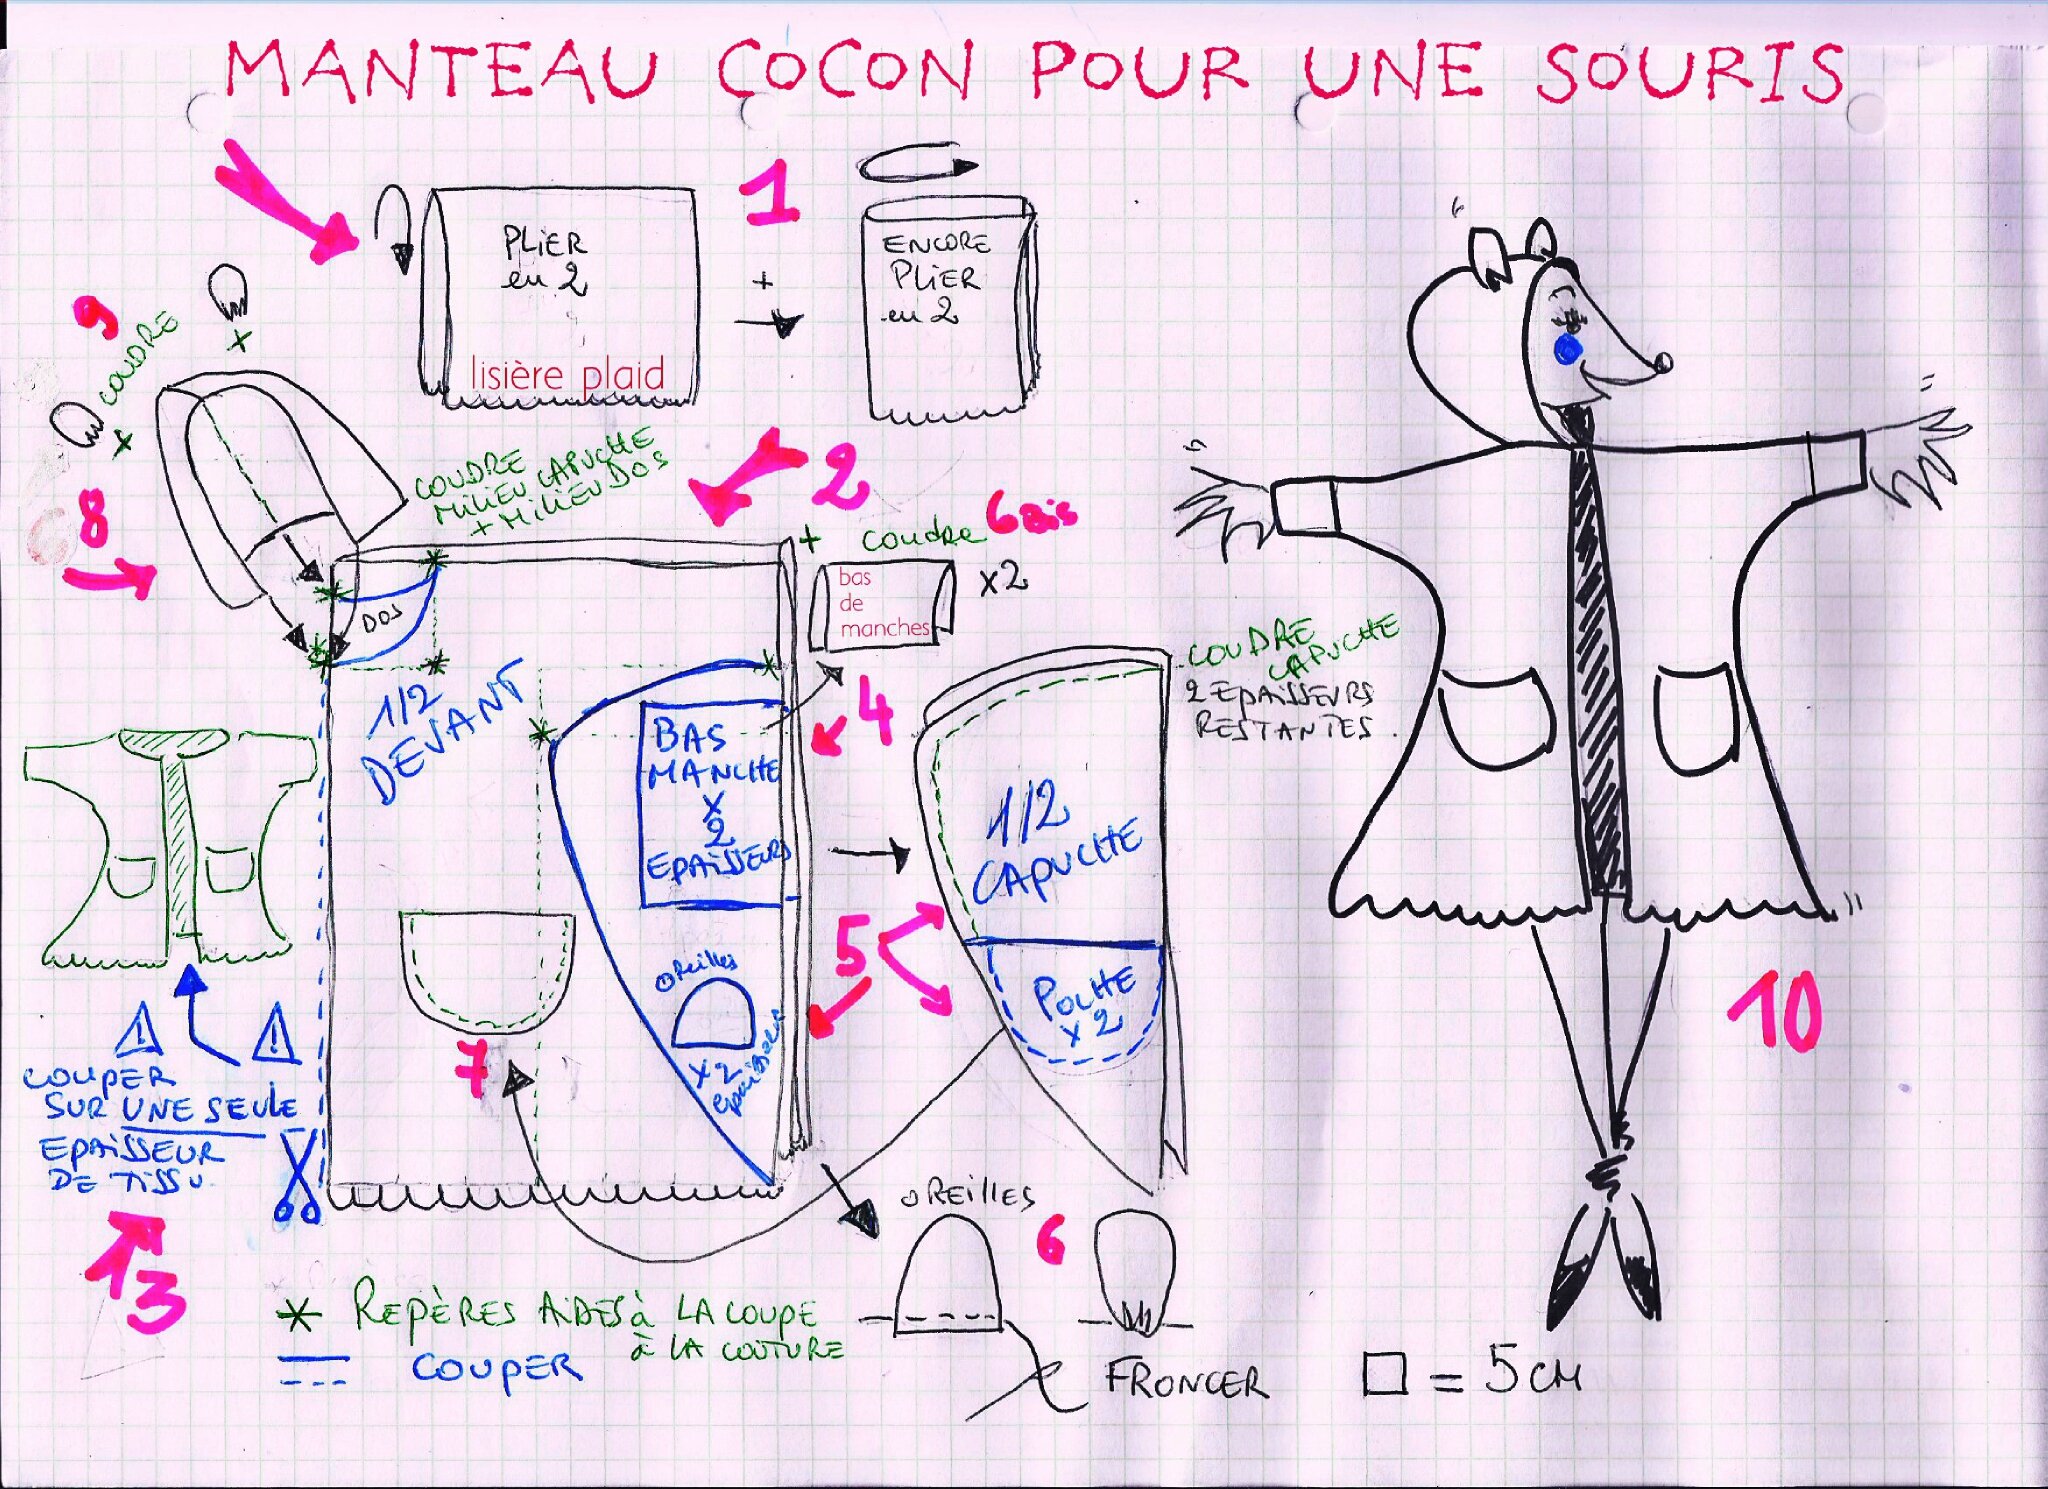 MANTEAU COCON POUR UNE SOURIS
1
PLIER
en 2
lisière plaid
+
ENCORE
PLIER
en 2
9
COUDRE
+
+
8
COUDRE
MILIEU CAPUCHE
+ MILIEU DOS
2
+ coudre 6 Bis
bas
de
manches
x2
DOS
1/2
DEVANT
4
BAS
MANCHE
X
2
EPAISSEURS
COUDRE
CAPUCHE
2 EPAISSEURS
RESTANTES.
1/2
CAPUCHE
5
POCHE
x 2
OREILLES
x2
épaisseurs
7
10
COUPER
SUR UNE SEULE
EPAISSEUR
DE TISSU
3
OREILLES
6
FRONCER
* REPÈRES AIDES à LA COUPE
à LA COUTURE
COUPER
□ = 5 CM